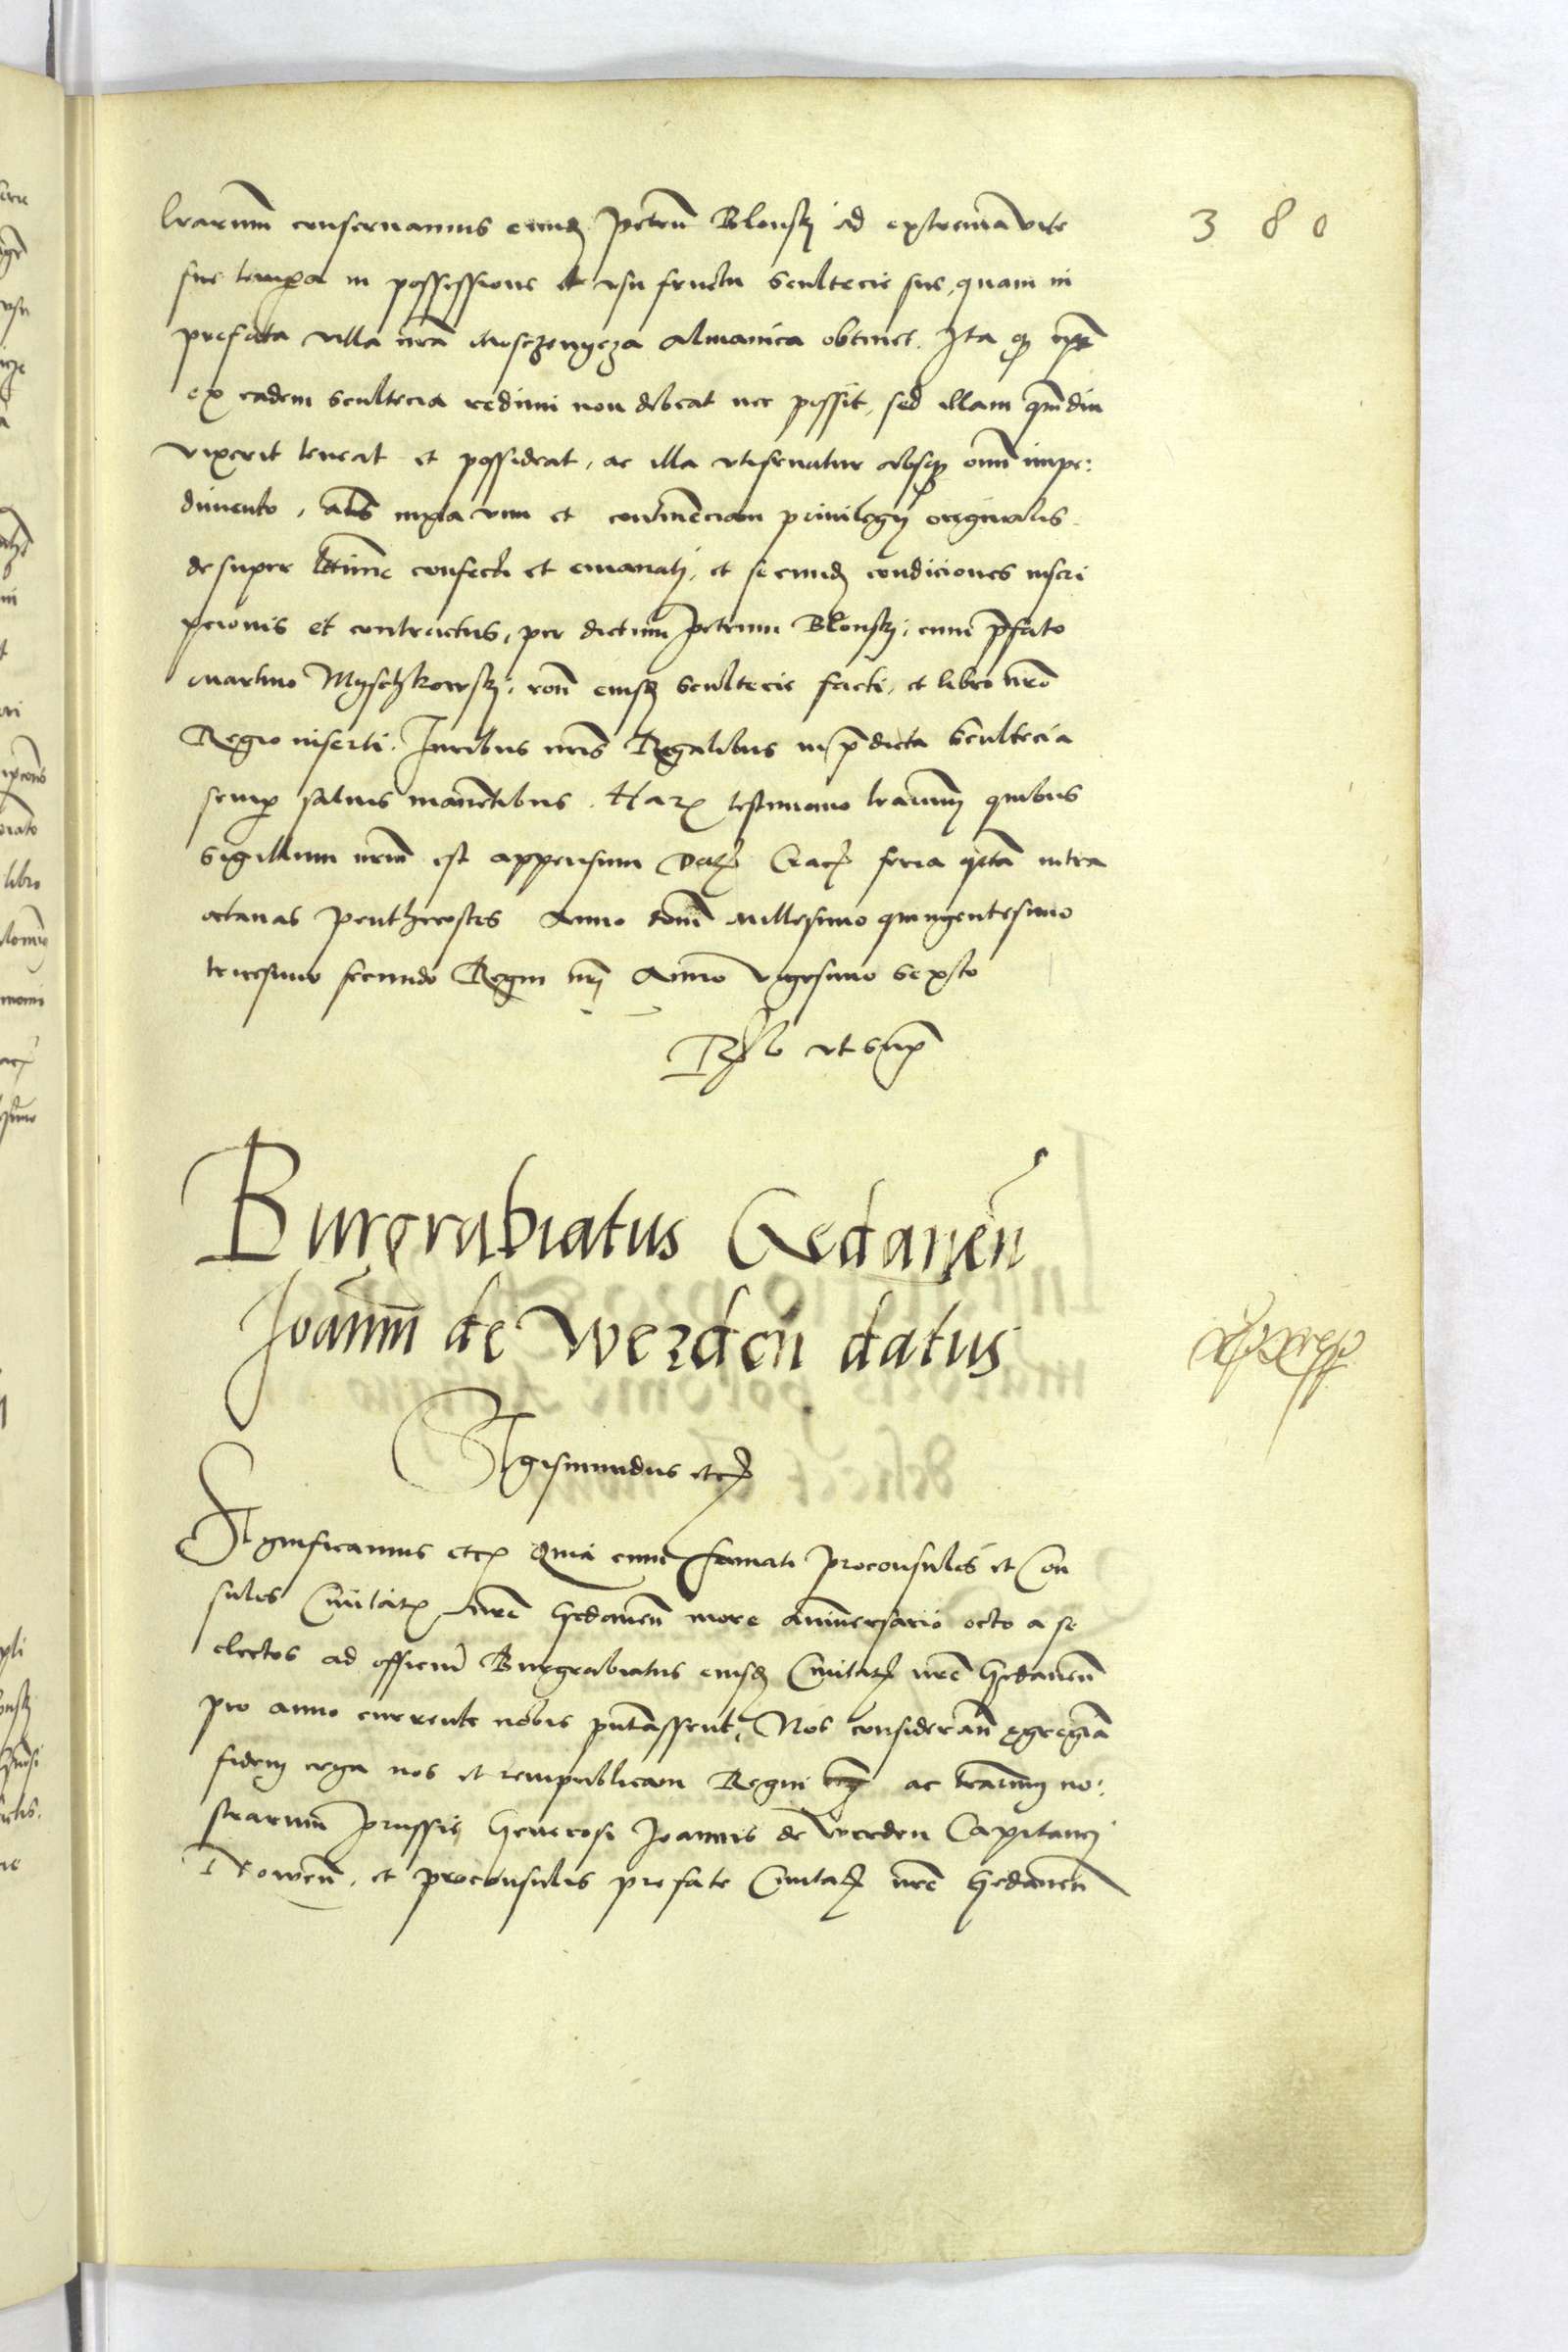 380
lrarum conservamus eund Petrum Blonskj ad extrema vite
sue tempora in possessione et usu fructu scultecie sue, quam in
prefata villa nra Mosczenycza Almanica obtinet. Ita q ipse
ex eadem scultecia redimi non debeat nec possit, sed illam qmdiu
vixerit teneat et possideat, ac illa utifruatur absq omni impe:
dimento, als iuxta vim et continenciam privilegii originalis
desuper lttime confecti et emanatj, et secund condiciones inscri
pcionis et contractus, per dictum Petrum Blonskj, cum pfato
Martino Myschkowskj, ron eiusd scultecie facti, et libro nro
Regio inserti. Iuribus nris Regalibus in pdicta Scultecia
semp salvis manentibus. Harz testimonio lrarum quibus
sigillum nrum est appensum Datz Crac feria qnta intra
octavas Penthecostes Anno domi Millesimo quingentesimo
tricesimo secundo Regni nrj Anno vigesimo sexto
Rlo ut sup
Burgrabiatus Gedanen
Joanni de Werden datus
Sigismundus etc
Significamus etc Quia cum famati Proconsules et Con
sules Civitatz nre Gedanen more anniversario octo a se
electos ad officium Burgrabiatus eiusd Civitatz nre Gedanen
pro anno currente nobis pntassent, Nos consideran egregia
fidem erga nos et rempublicam Regni ac terarum no:
strarum Prussie Generosi Joannis de Werden Capitanej
et proconsulis prefate Civitatz nre Gedanen